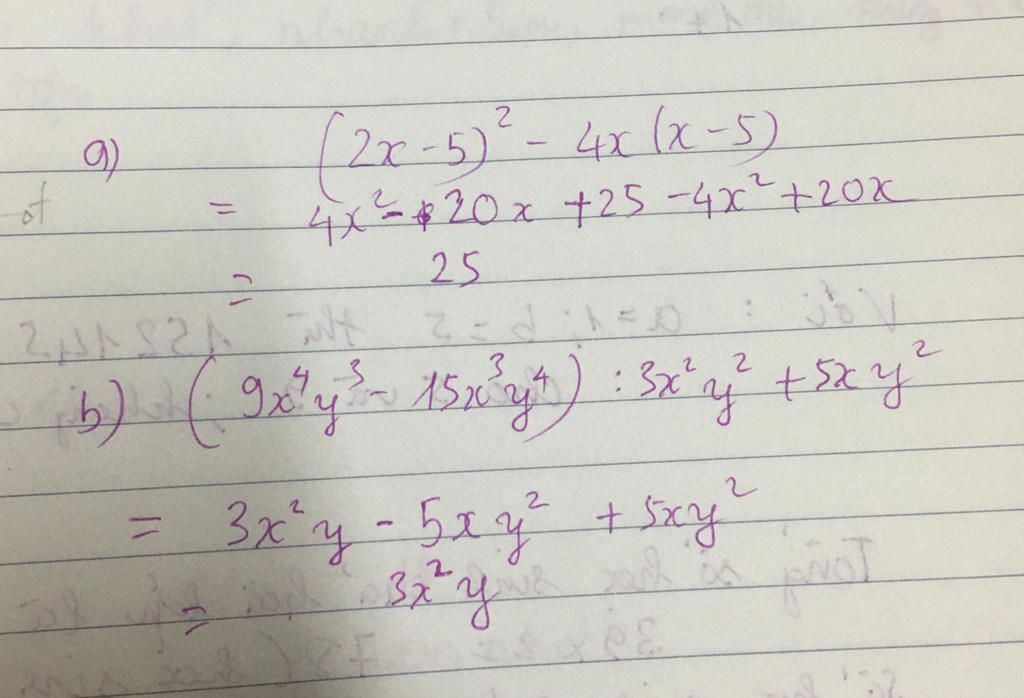 a) (2x - 5)² - 4x (x - 5)
= 4x² - 20x + 25 - 4x² + 20x
= 25
b) (9x⁴y³ - 15x³y⁴) : 3x²y² + 5xy²
= 3x²y - 5xy² + 5xy²
= 3x²y